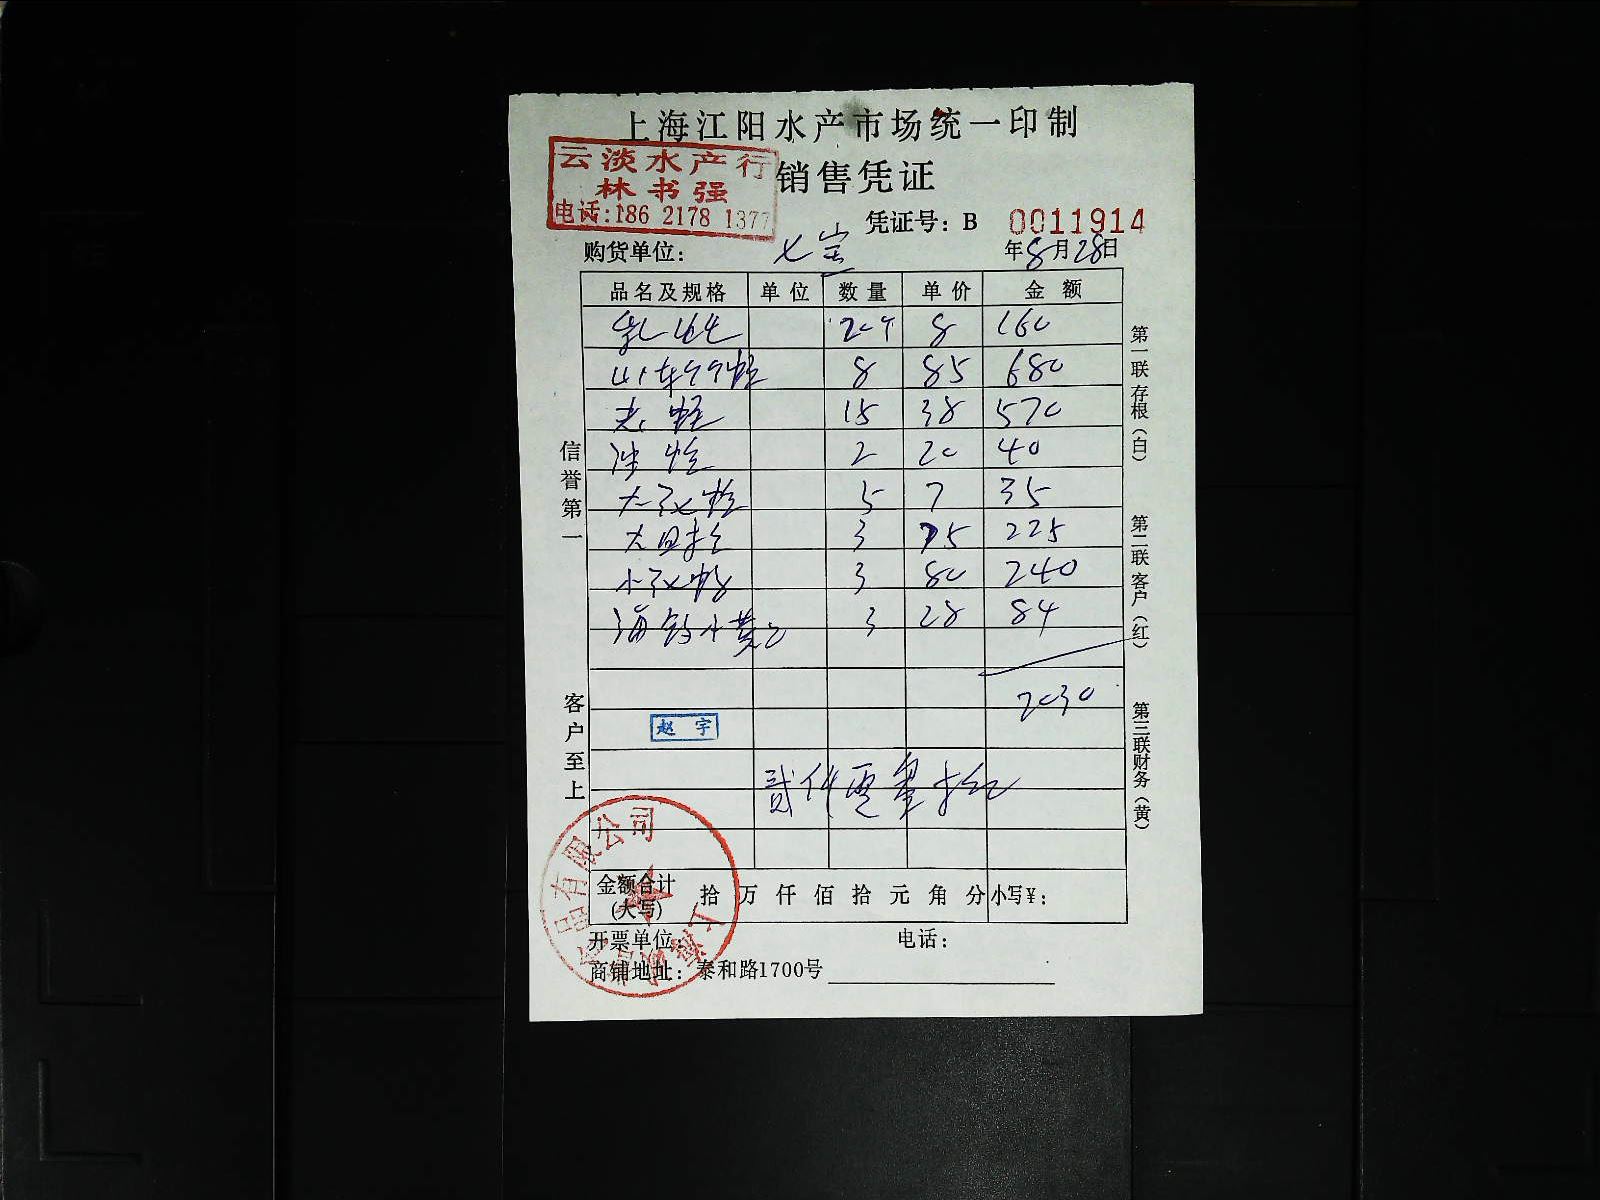 上海江阳水产市场统一印制
云淡水产行
林书强
电话:186 2178 1377
销售凭证
凭证号：B 0011914
购货单位：七宝
年8月28日
品名及规格 单位 数量 单价 金额
20个 8 160
8 85 680
15 38 570
2 20 40
5 7 35
3 75 225
3 80 240
海 小黄 3 28 84
2030
赵宇
贰仟零叁拾
金额合计(大写) 拾 万 仟 佰 拾 元 角 分 小写¥：
开票单位： 电话：
商铺地址：泰和路1700号
信誉第一
客户至上
第一联存根(白)
第二联客户(红)
第三联财务(黄)
品有限公司